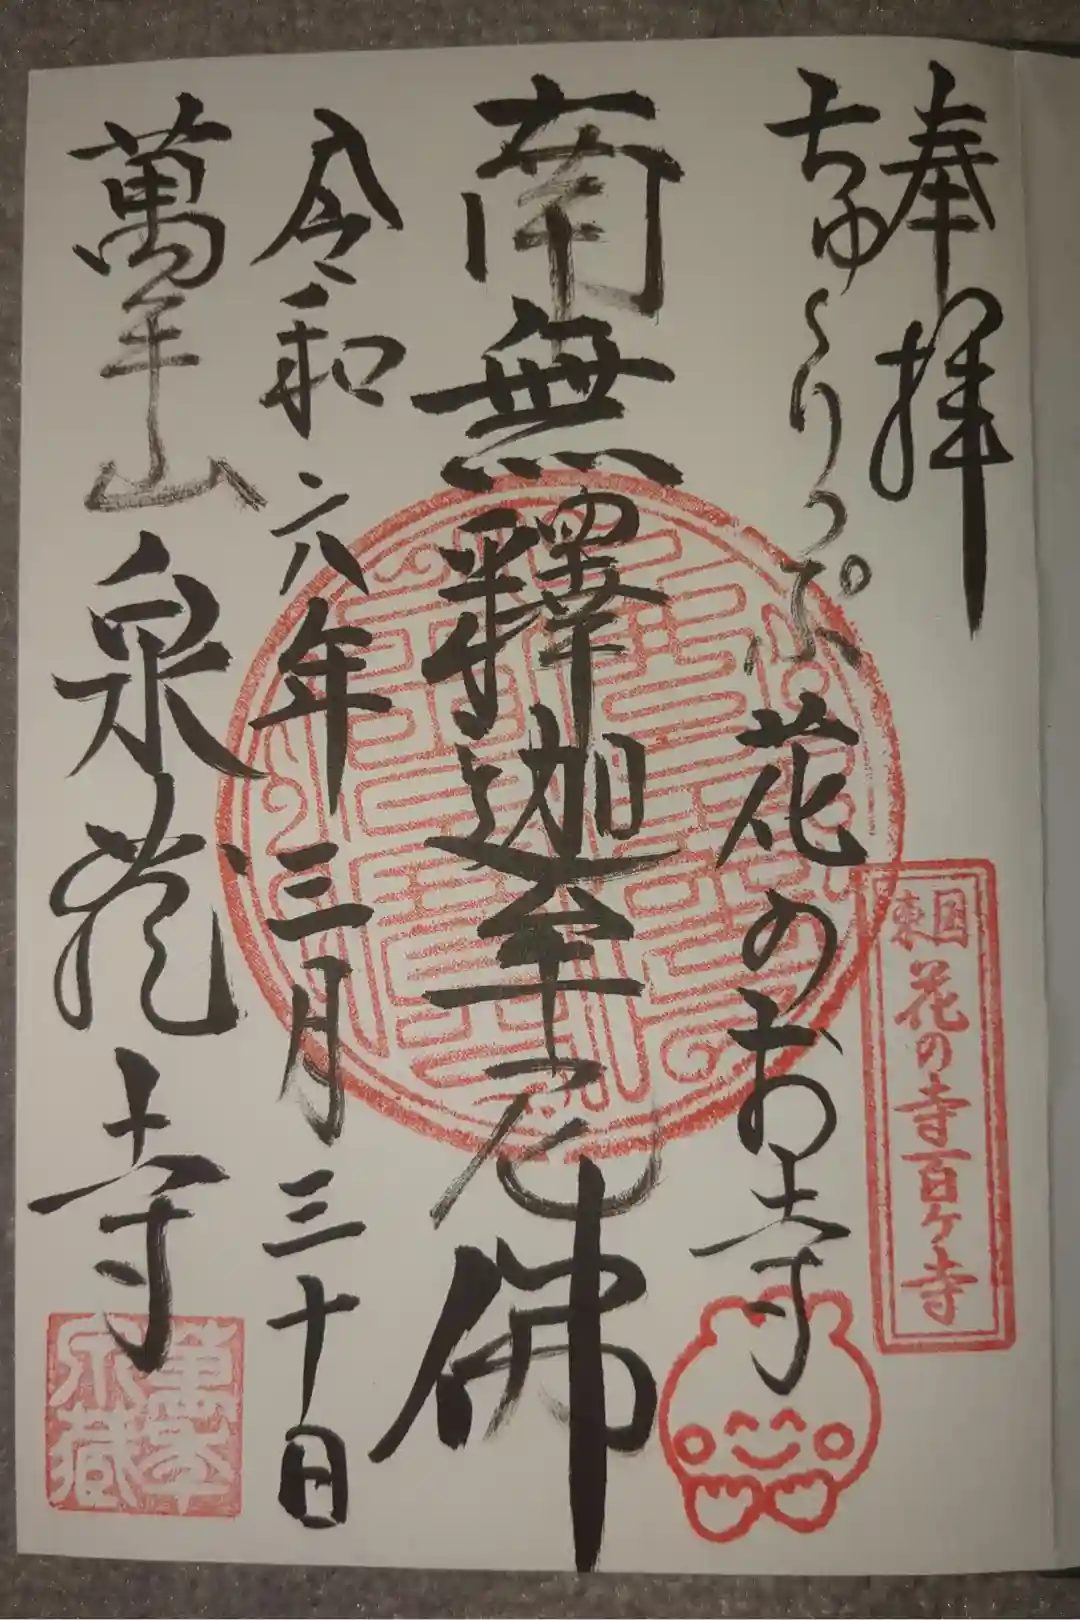 奉拝
ちゅーりっぷ
花のお寺
東国
花の寺百ヶ寺
南無釋迦牟尼佛
令和六年三月三十日
萬年山
泉蔵寺